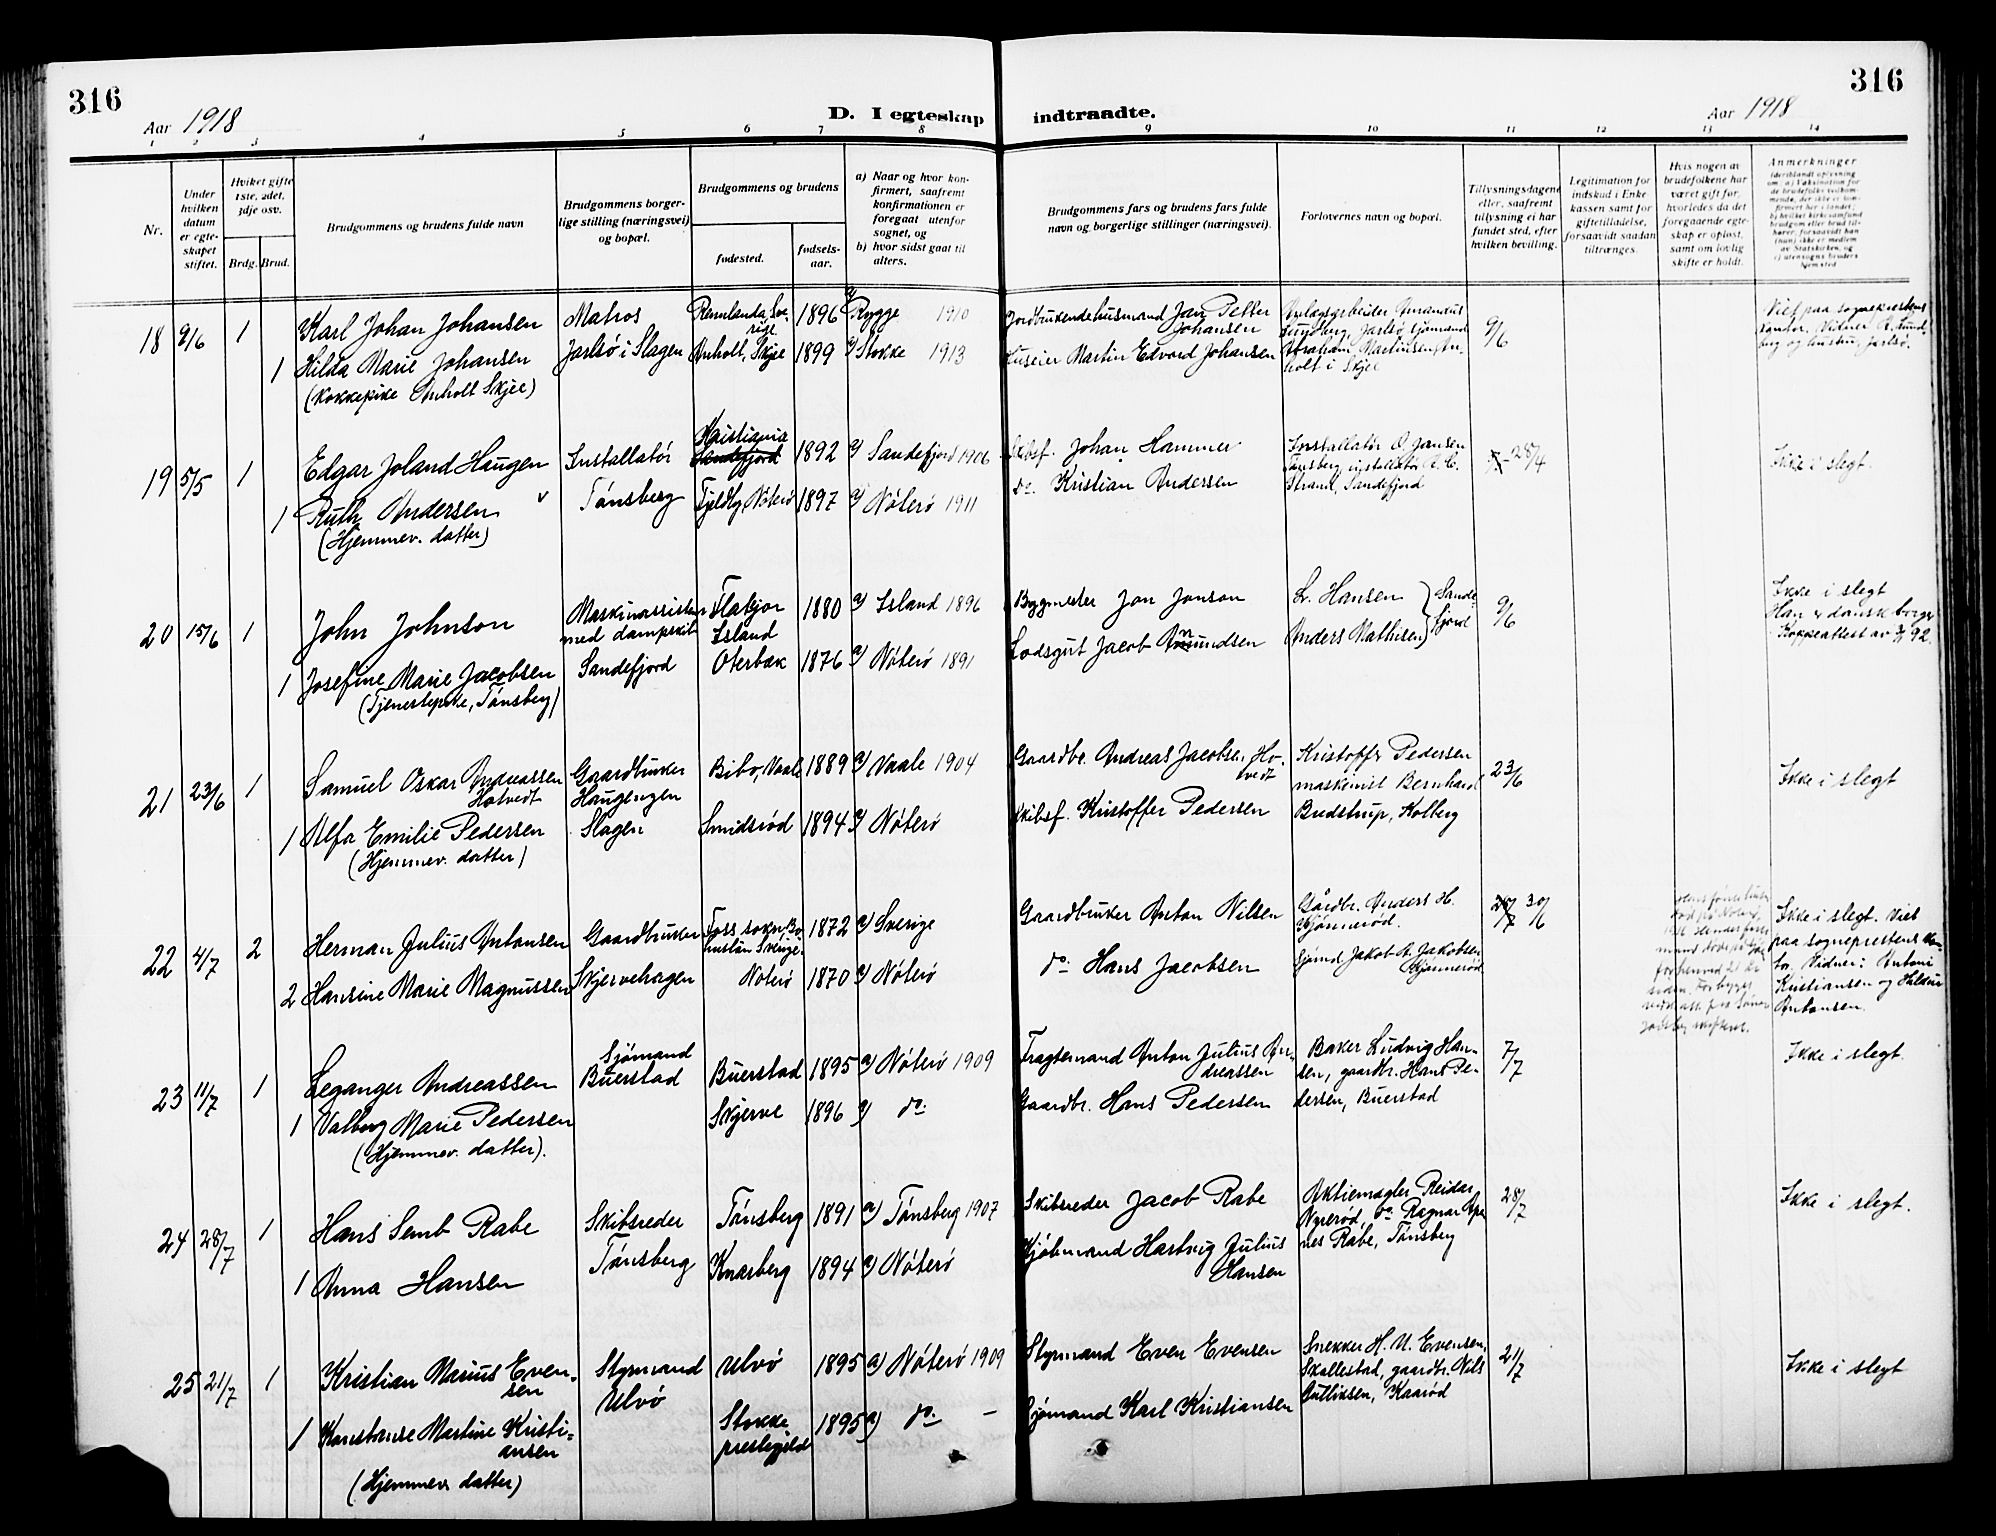 316
Aar 1918
D. I egteskap indtraadte.
Aar 1918
316
1 2 3 4 5 6 7 8 9 10 11 12 13 14
Nr.
Under hvilken datum er egteskapet stiftet.
Hviket gifte 1ste, 2det, 3dje osv.
Brdg. Brud.
Brudgommens og brudens fulde navn
Brudgommens borgerlige stilling (næringsvei) og bopæl.
Brudgommens og brudens
fødested.
fødselsaar.
a) Naar og hvor konfirmert, saafremt konfirmationen er foregaat utenfor sognet, og
b) hvor sidst gaat til alters.
Brudgommens fars og brudens fars fulde navn og borgerlige stillinger (næringsvei).
Forlovernes navn og bopæl.
Tillysningsdagene eller, saafremt tillysning ei har fundet sted, efter hvilken bevilling.
Legitimation for indskud i Enkekassen samt for giftetilladelse, forsaavidt saadan tiltrænges.
Hvis nogen av brudefolkene har været gift før, hvorledes da det foregaaende egteskap er opløst, samt om lovlig skifte er holdt.
Anmerkninger
18 9/6 1 Karl Johan Johansen Matros Remlanda, Sverige 1896 a) Rygge 1910 Jordbrukendehusmand Jan Petter Johansen
Jarlsø i Slagen
1 Hilda Marie Johansen Anholt, Skjee 1899 a) Stokke 1913 Huseier Martin Edvard Johansen
(Kokkepike Anholt Skjee)
Jarlsø, sjømand Abraham Martinsen, Anholt i Skjee
9/6
Viet paa sogneprestens kontor.
19 5/5 1 Edgar Joland Haugen Installatør Kristiania Sandefjord 1892 a) Sandefjord 1906 Skibsf. Johan Hammer
Tønsberg
1 Ruth Andersen Fjeldby Nøterø 1897 a) Nøterø 1911 do. Kristian Andersen
(Hjemmev. datter)
Installatør O. Jansen Tønsberg, installatør A. C. Strand, Sandefjord
28/4
Ikke i slegt.
20 15/6 1 John Johnson Maskinassistent med dampskib Flatejor Island 1880 a) Island 1896 Bygmester Jon Jonson
Sandefjord
1 Josefine Marie Jacobsen Oterbæk 1876 a) Nøterø 1891 Lodsgut Jacob Anmundsen
(Tjenestepike, Tønsberg)
L. Hansen
Anders Mathisen } Sandefjord
9/6
Ikke i slegt
Han er dansk borger
Koppeattest av
21 23/6 1 Samuel Oskar Andreassen Hotvedt Gaardbruker Haugengen Slagen Bibo, Vaale 1889 a) Vaale 1904 Gaardbr. Andreas Jacobsen Hotvedt
1 Alfa Emilie Pedersen Smidsrød 1894 a) Nøterø Skibsf. Kristoffer Pedersen
(Hjemmev. datter)
Kristoffer Pedersen
maskinist Bernhard Bredstrup, Kolberg
23/6
Ikke i slegt
22 4/7 2 Herman Julius Antonsen Gaardbruker Foss sokn, Bohuslän Sverige 1872 a) Sverige Gaardbruker Anton Nilsen
Skjervehagen
2 Hansine Marie Magnussen Nøterø 1870 a) Nøterø do. Hans Jacobsen
Gårdbr. Anders H. Kjønnerød.
Sjømd Jakob A. Jakobsen Kjønnerød
30/6
Ikke i slegt. Viet paa sogneprestens kontor. Vidner: Antoni Kristiansen og Haldur Antonsen.
23 11/7 1 Leganger Andreassen Sjømand Buerstad Buerstad 1895 a) Nøterø 1909 Fragtemand Anton Julius Andreassen
1 Valborg Marie Pedersen Skjerve 1896 a) do. Gaardbr. Hans Pedersen
(Hjemmev. datter).
Baker Ludvig Hansen, gaardbr. Hans Pedersen, Buerstad
7/7
Ikke i slegt.
24 28/7 1 Hans Semb Rabe Skibsreder Tønsberg Tønsberg 1891 a) Tønsberg 1907 Skibsreder Jacob Rabe
1 Anna Hansen Knarberg 1894 a) Nøterø Kjøbmand Hartvig Julius Hansen
Aktiemægler Reidar Nyrerød, do. Ragnar Agenes Rabe, Tønsberg
28/7
Ikke i slegt.
25 21/7 1 Kristian Marius Evensen Styrmand Ulvø Ulvø 1895 a) Nøterø 1909 Styrmand Even Evensen
1 Konstanse Martine Kristiansen Stokke prestegjeld 1895 a) do. – Sjømand Karl Kristiansen
(Hjemmev datter)
Snekker H. M. Evensen, Skallestad, gaardbr. Nils Gulliksen, Kaarød
21/7
Ikke i slegt